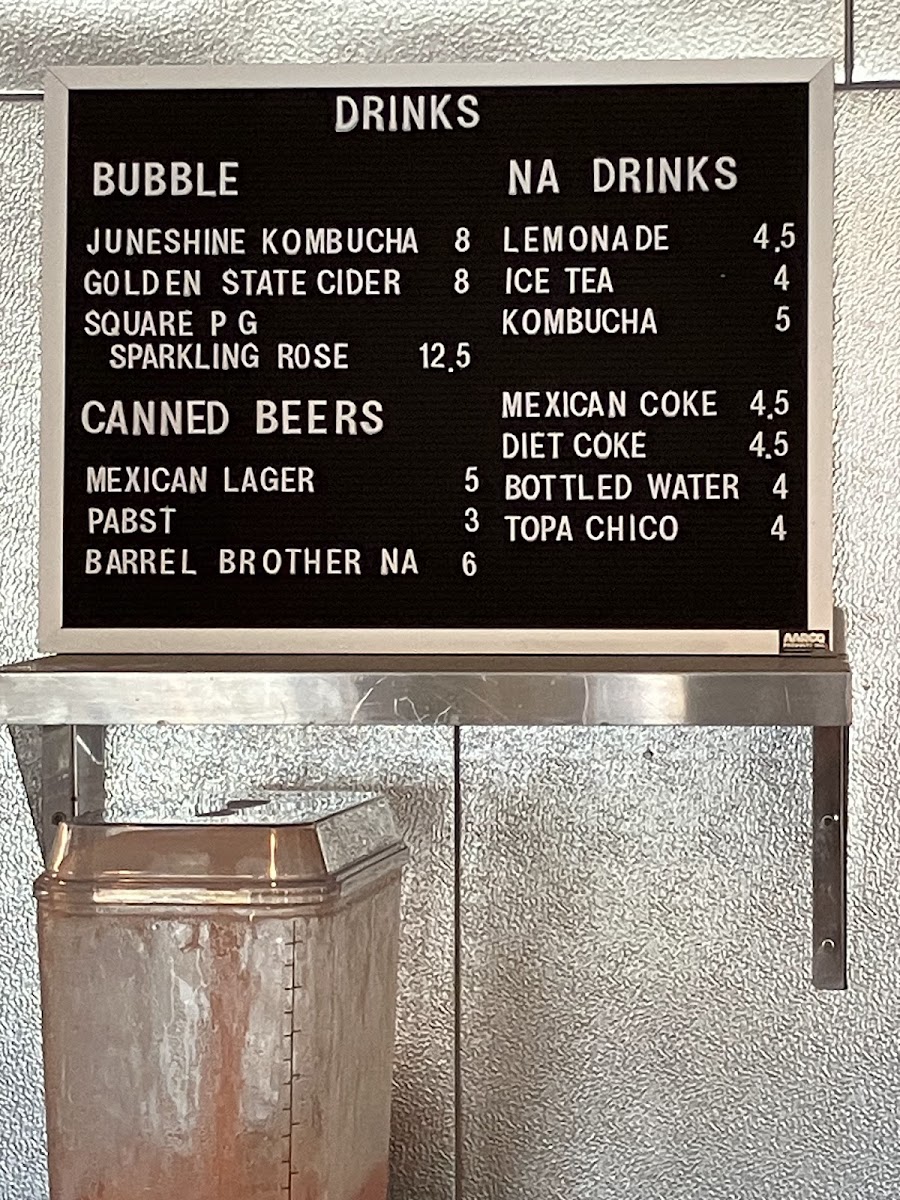 DRINKS
BUBBLE
JUNESHINE KOMBUCHA 8
GOLDEN STATE CIDER 8
SQUARE P G
SPARKLING ROSE 12.5
CANNED BEERS
MEXICAN LAGER 5
PABST 3
BARREL BROTHER NA 6
NA DRINKS
LEMONADE 4.5
ICE TEA 4
KOMBUCHA 5
MEXICAN COKE 4.5
DIET COKE 4.5
BOTTLED WATER 4
TOPA CHICO 4
AARCO